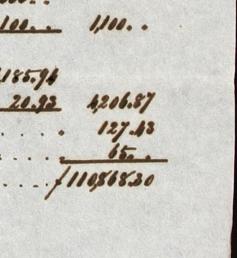 100.. 1,100..
185.94
20.93 4,206.87
127.43
65..
ƒ110,868.30